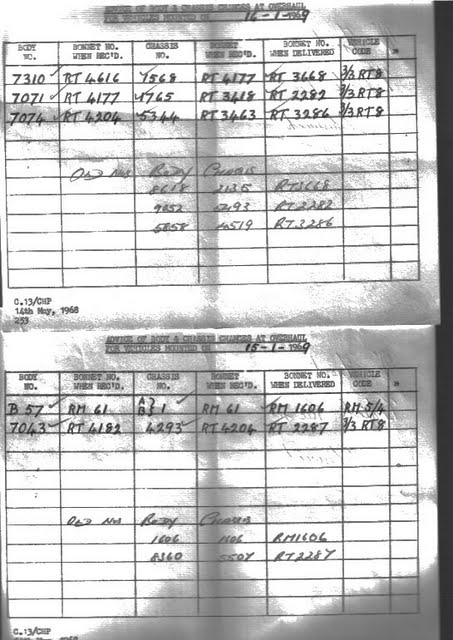 ADVICE OF BODY & CHASSIS CHANGES AT OVERHAUL
FOR VEHICLES MOUNTED ON 14-1-1969
BODY NO. BONNET NO. WHEN REC'D. CHASSIS NO. BONNET WHEN REC'D. BONNET NO. WHEN DELIVERED VEHICLE CODE
7310 RT 4616 7568 RT 4177 RT 3668 3/3 RT8
7071 RT 4177 4765 RT 3418 RT 2282 3/3 RT8
7074 RT 4204 5344 RT 3463 RT 3286 3/3 RT8
OLD NOS BODY CHASSIS
8618 2135 RT3668
9652 RT2282
5858 RT3286
C.13/CHP
14th May, 1968
253
ADVICE OF BODY & CHASSIS CHANGES AT OVERHAUL
FOR VEHICLES MOUNTED ON 15-1-1969
BODY NO. BONNET NO. WHEN REC'D. CHASSIS NO. BONNET WHEN REC'D. BONNET NO. WHEN DELIVERED VEHICLE CODE
B 57 RM 61 A B } 1 RM 61 RM 1606 RM 5/4
7043 RT 4182 4293 RT 4204 RT 2287 3/3 RT8
OLD NOS BODY CHASSIS
1606 1606 RM1606
8360 5507 RT2287
C.13/CHP